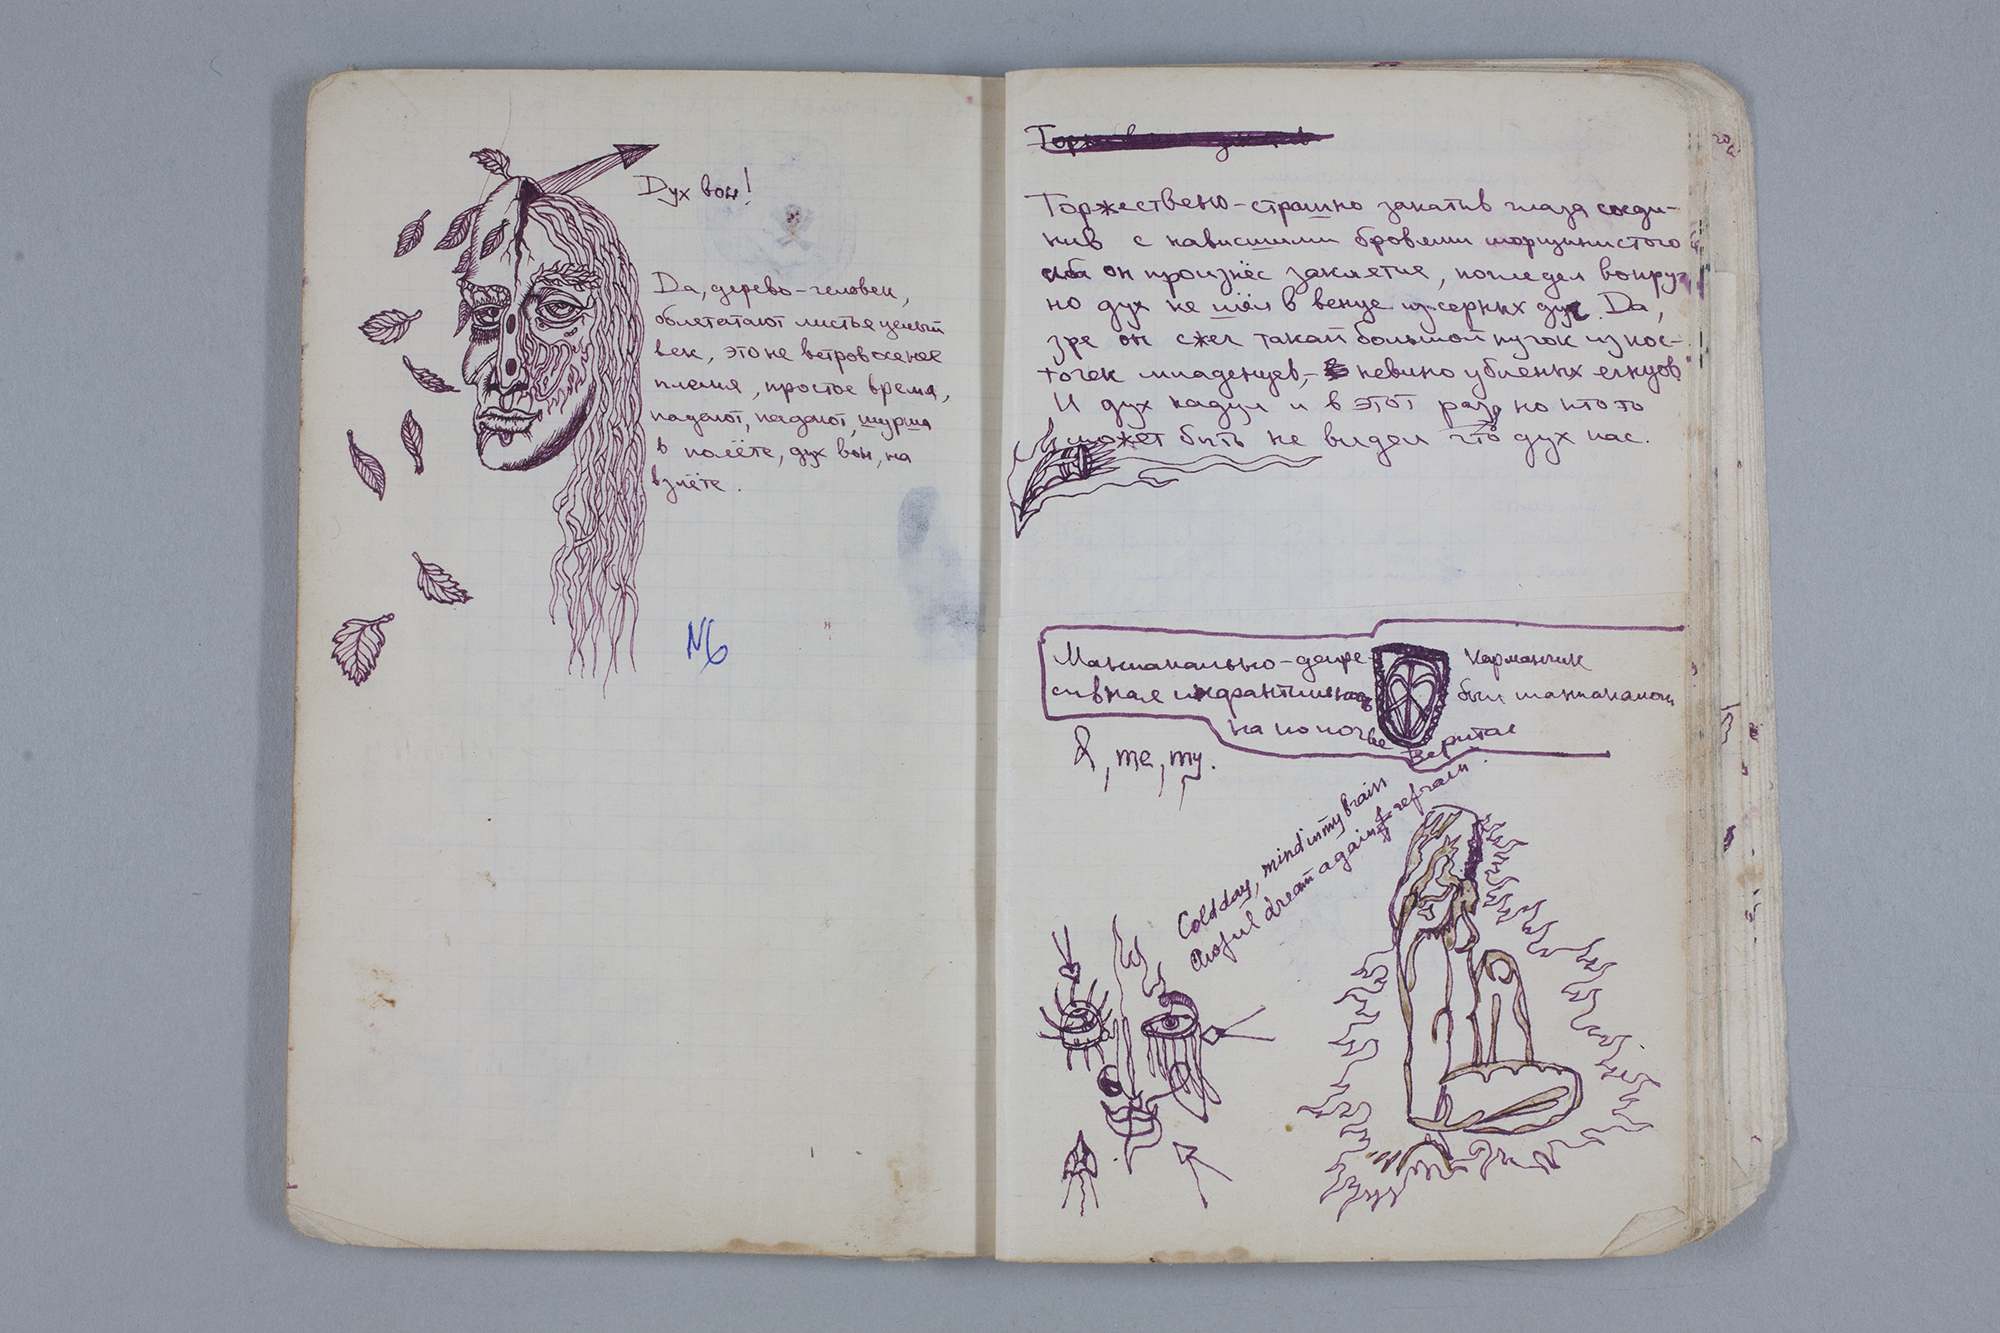 Дух вон!
Да, дерево-человек,
облетатают листья целый
век, это не ветров осенее
племя, простое время,
падают, падают, шурша
в полёте, дух вон, на
взлёте.
N6
Торжествено-страшно закатив глаза соеди-
нив с нависшими бровями морщинистого
лба он произнёс заклятие, поглядел вокруг
но дух не шёл в венце из серных дуг. Да,
зре он сжег такай большой пучок из кос-
точек младенцев, - невино убиеных агнцов
И дух надул и в этот раз, но кто то
может быть не видел что дух пас.
Маниакально-депре-
сивная инфантильность
на по почве
Карманчик
был маниакален
Веритас
Я, me, my.
Cold day, mind in my brain
Awful dream again refrain